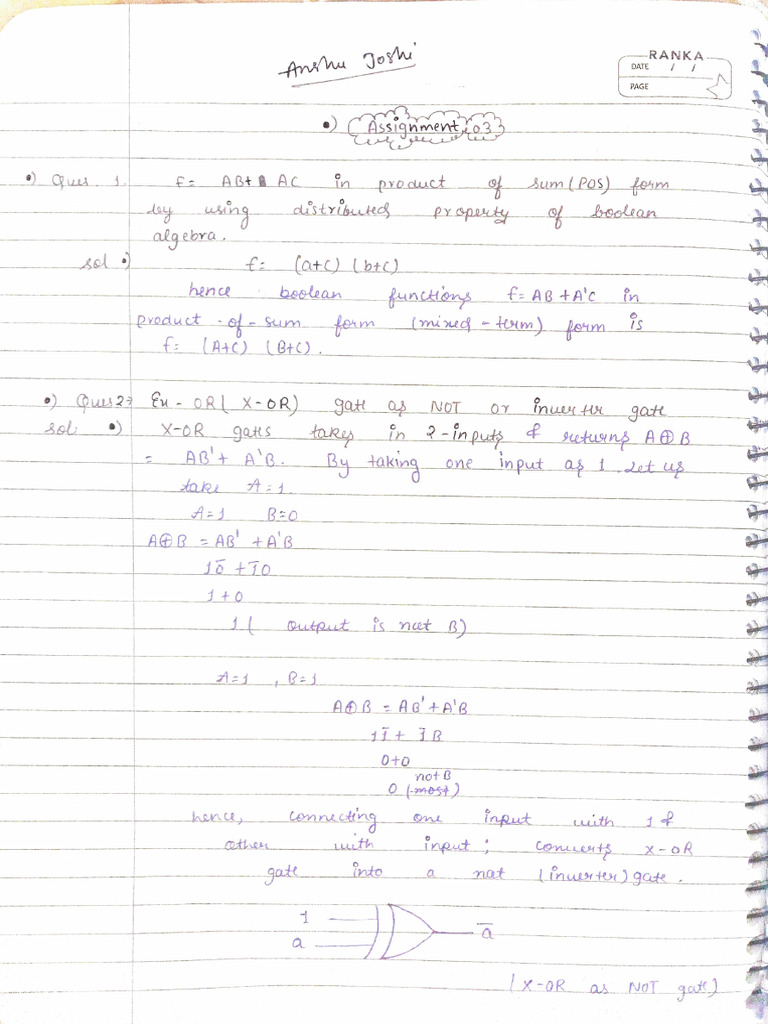 Anshu Joshi
RANKA
DATE / /
PAGE
•) Assignment, 03
•) Ques. 1. f = AB + AC in product of sum (POS) form
by using distributed property of boolean
algebra.
sol •) f = (a+c) (b+c)
hence boolean functions f = AB + A'C in
product-of-sum form (mixed-term) form is
f = (A+C) (B+C).
•) Ques 2 Ex-OR ( X-OR) gate as NOT or inverter gate
sol •) X-OR gates takes in 2-inputs & returns A⊕B
= AB' + A'B. By taking one input as 1. Let us
take A=1.
A=1 B=0
A⊕B = AB' + A'B
1 0̅ + 1̅ 0
1+0
1 ( output is not B)
A=1 , B=1
A⊕B = AB' + A'B
1 1̅ + 1̅ B
0+0
not B
0 (most)
hence, connecting one input with 1 &
other with input ; converts X-OR
gate into a not (inverter) gate.
1
a
a̅
( X-OR as NOT gate)